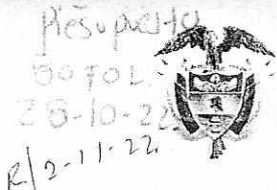 Presupuesto
BOTOL
28-10-22
R/2-11-22